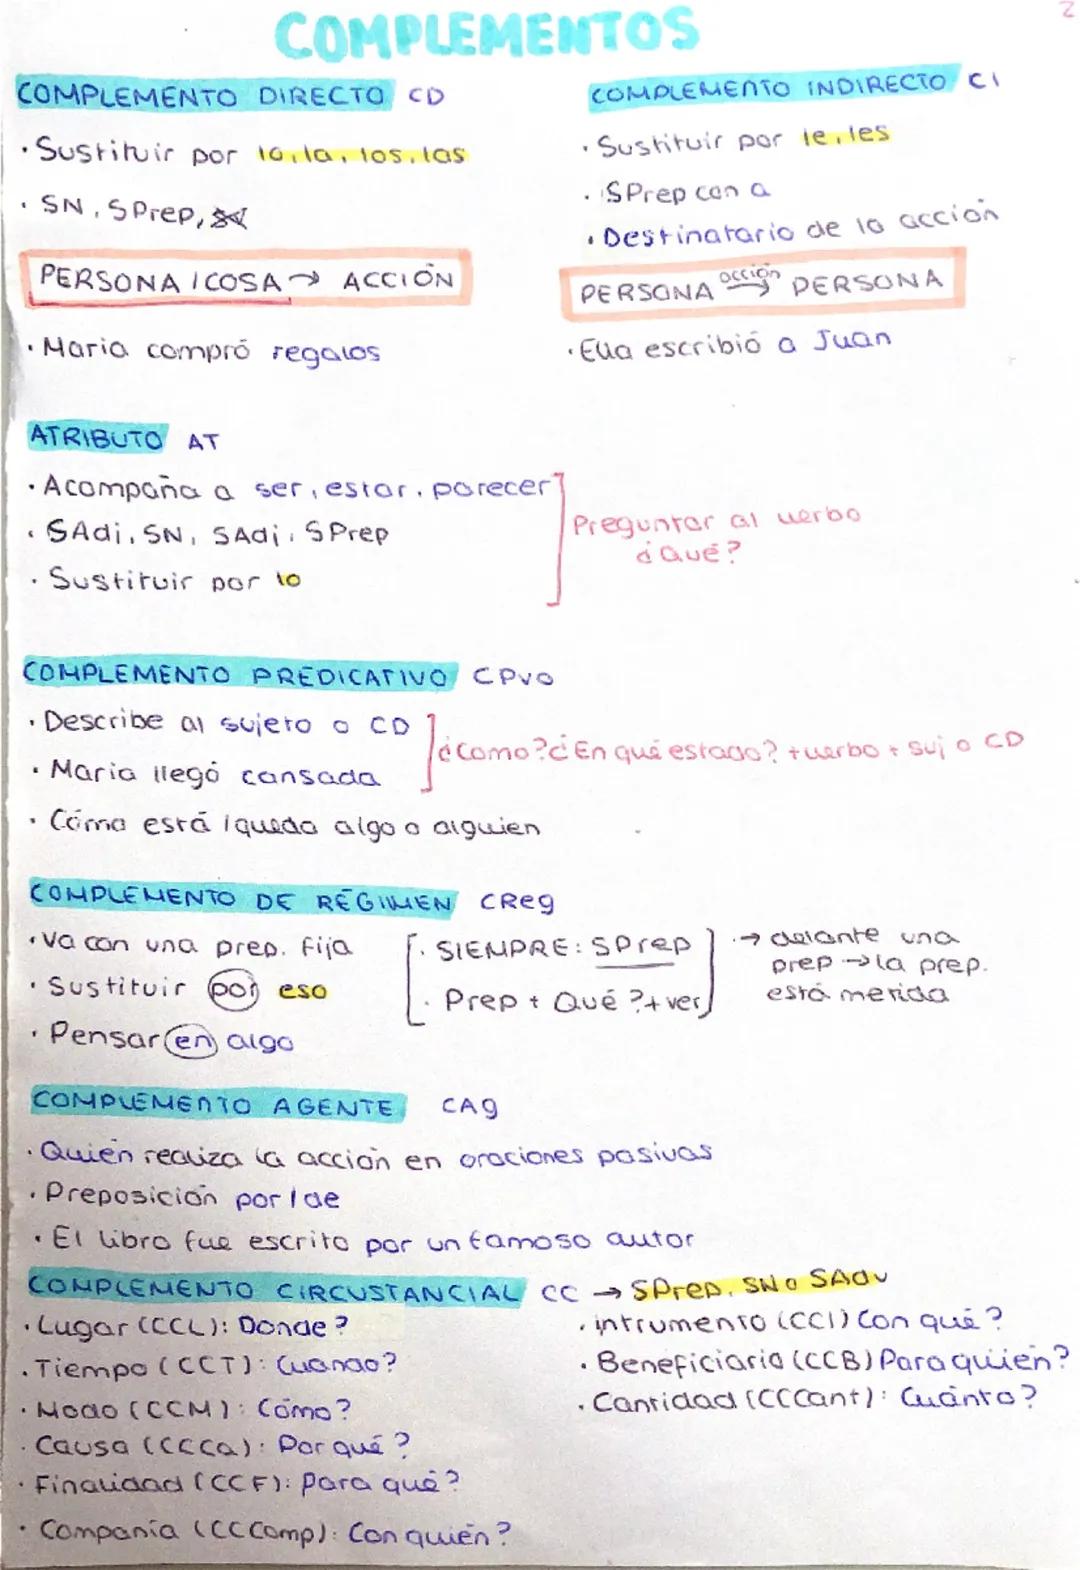 2
COMPLEMENTOS
COMPLEMENTO DIRECTO CD
· Sustituir por lo, la, los, las
· SN, SPrep,
PERSONA / COSA → ACCIÓN
· Maria compró regalos
COMPLEMENTO INDIRECTO CI
· Sustituir por le, les
· SPrep con a
· Destinatario de la acción
PERSONA acción → PERSONA
· Ella escribió a Juan
ATRIBUTO AT
· Acompaña a ser, estar, parecer
· SAdj, SN, SAdj, SPrep
· Sustituir por lo
Preguntar al verbo
¿Qué?
COMPLEMENTO PREDICATIVO CPvo
· Describe al sujeto o CD
· Maria llegó cansada
¿Como? ¿En qué estado? + verbo + suj o CD
· Cómo está / queda algo o alguien
COMPLEMENTO DE RÉGIMEN CReg
· Va con una prep. fija
· Sustituir por eso
· Pensar en algo
· SIEMPRE: SPrep
· Prep + Qué? + ver
· → delante una
prep → la prep.
está metida
COMPLEMENTO AGENTE CAg
· Quién realiza la acción en oraciones pasivas
· Preposición por / de
· El libro fue escrito por un famoso autor
COMPLEMENTO CIRCUSTANCIAL CC → SPrep, SN o SAdv
· Lugar (CCL): Donde?
· Tiempo (CCT): Cuando?
· Modo (CCM): Cómo?
· Causa (CCCa): Por qué?
· Finalidad (CCF): Para qué?
· Companía (CCComp): Con quién?
· intrumento (CCI) Con qué?
· Beneficiario (CCB) Para quién?
· Cantidad (CCCant): Cuánto?